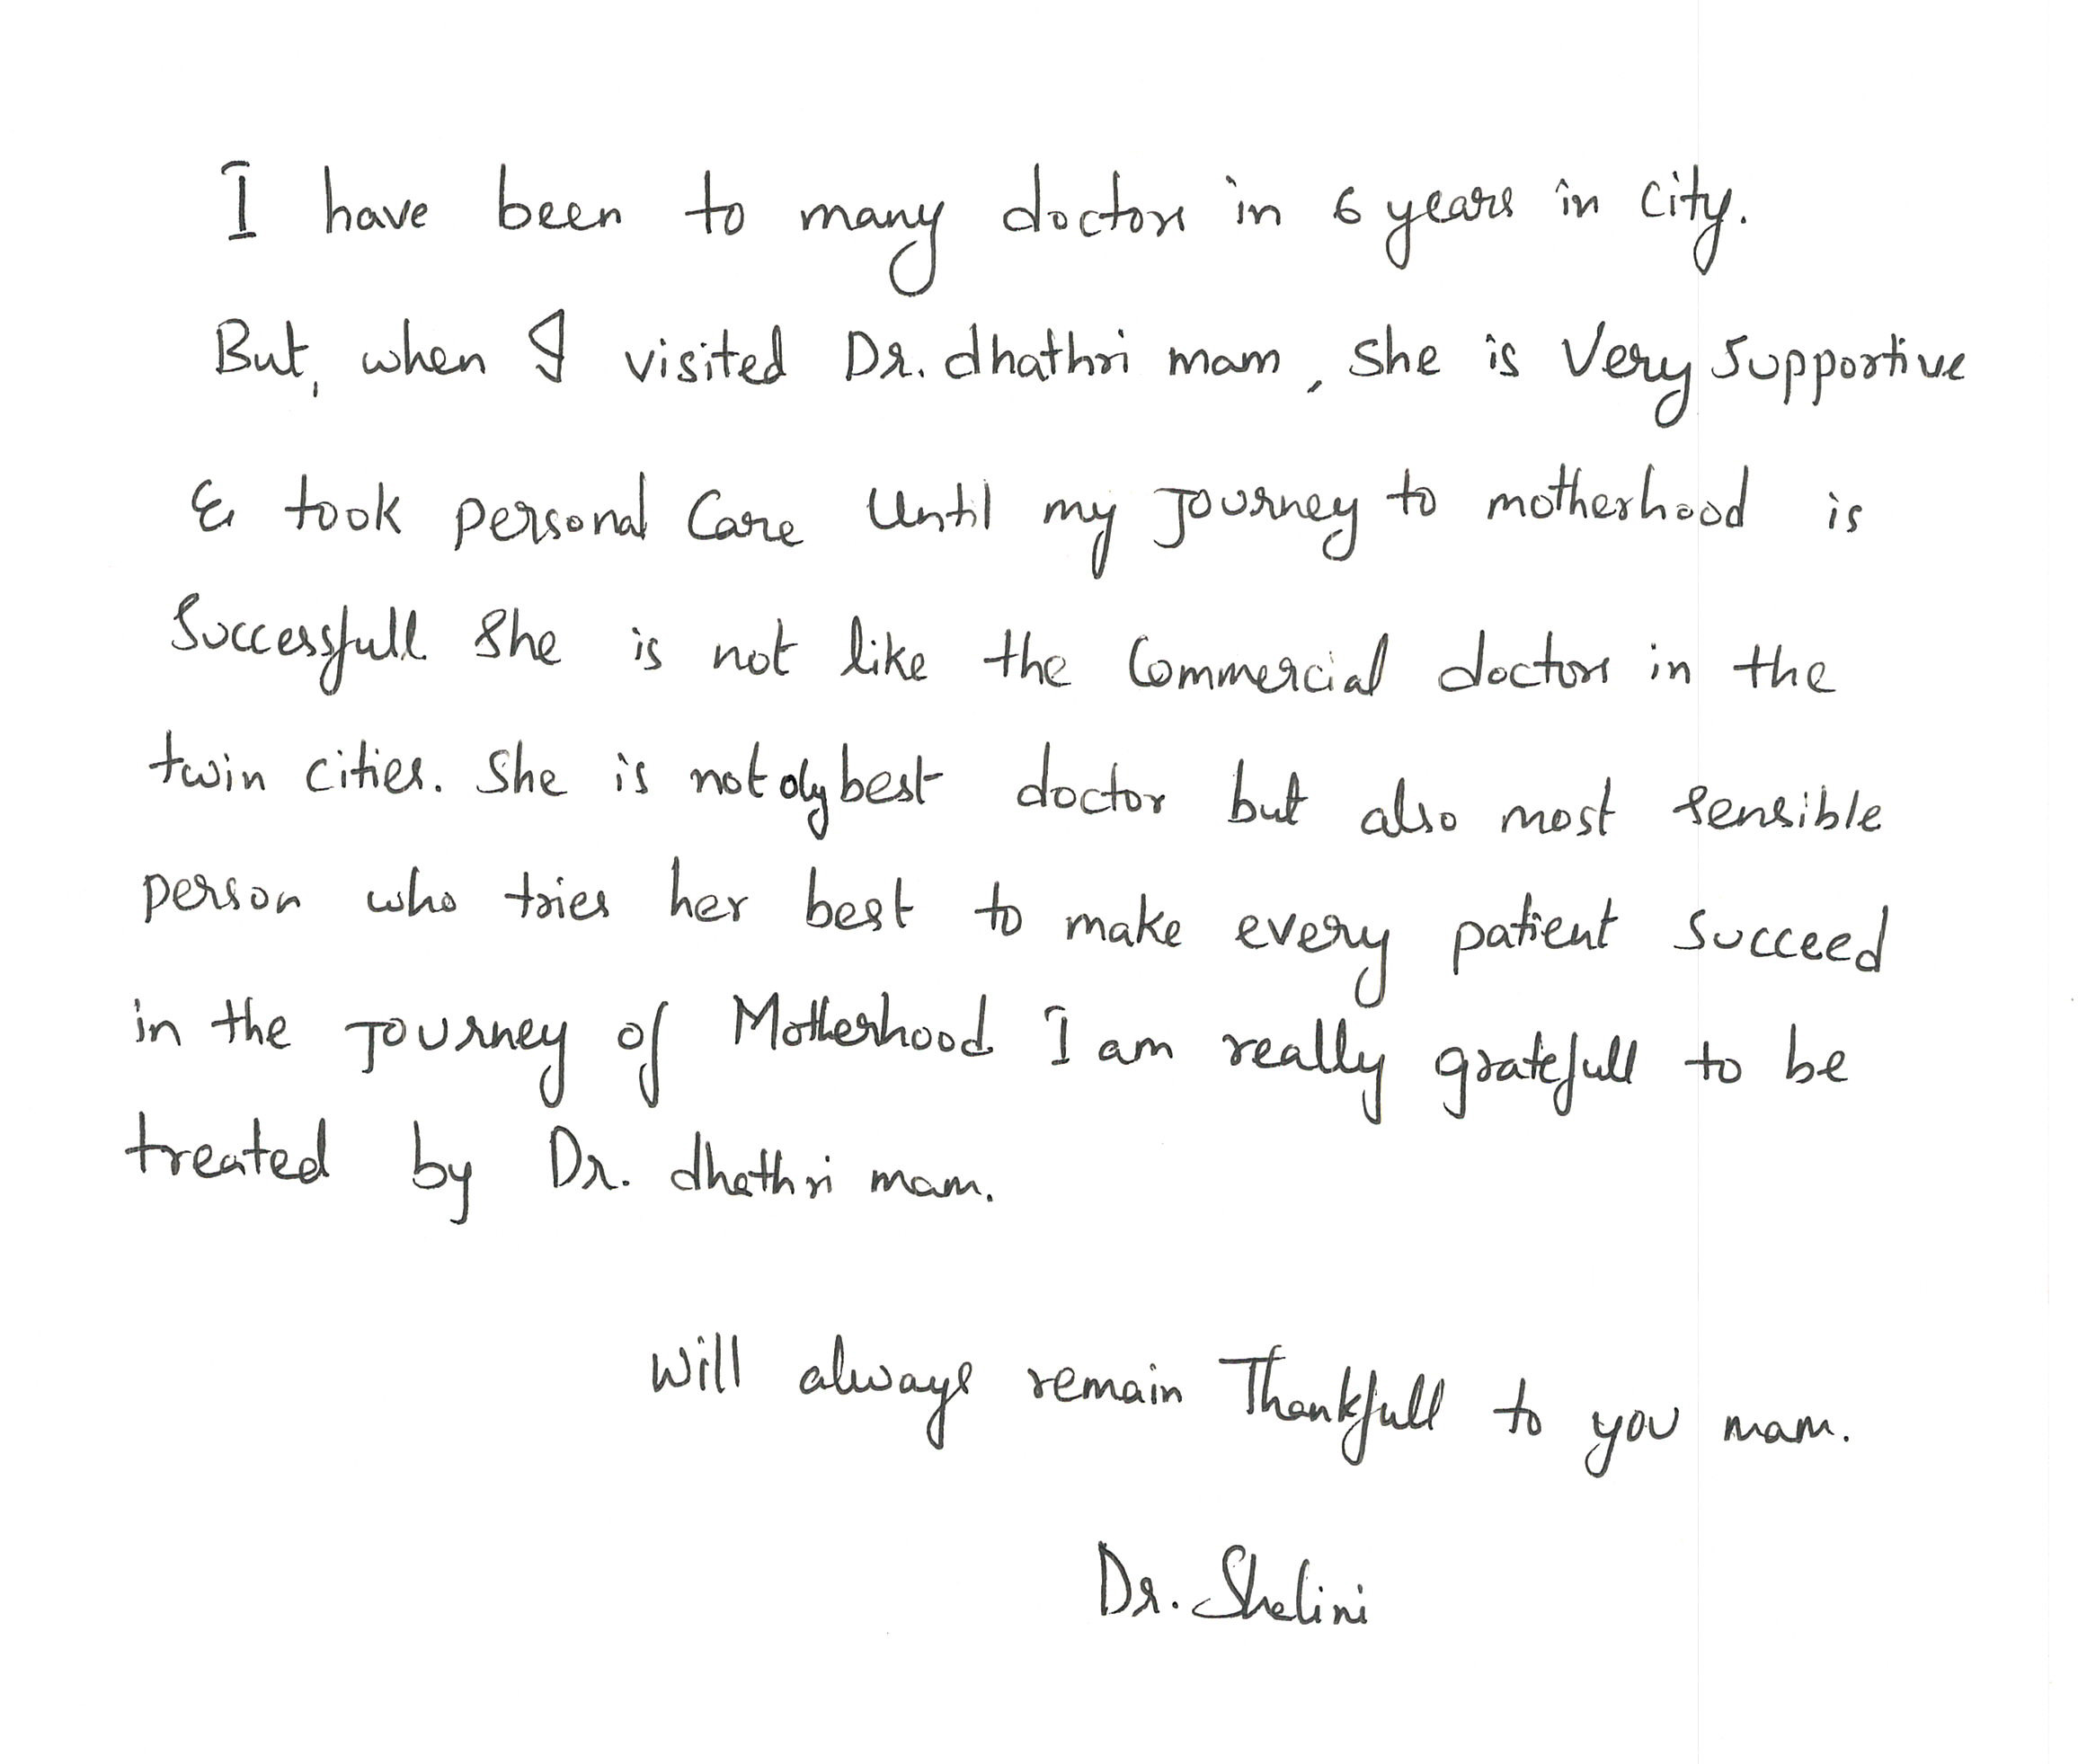 I have been to many doctors in 6 years in city.
But, when I visited Dr. dhathri mam, She is Very supportive
& took personal Care Until my Journey to motherhood is
Successfull She is not like the Commercial doctors in the
twin cities. She is not oly best doctor but also most sensible
person who tries her best to make every patient succeed
in the Journey of Motherhood I am really gratefull to be
treated by Dr. dhathri mam.
Will always remain Thankfull to you mam.
Dr. Shalini